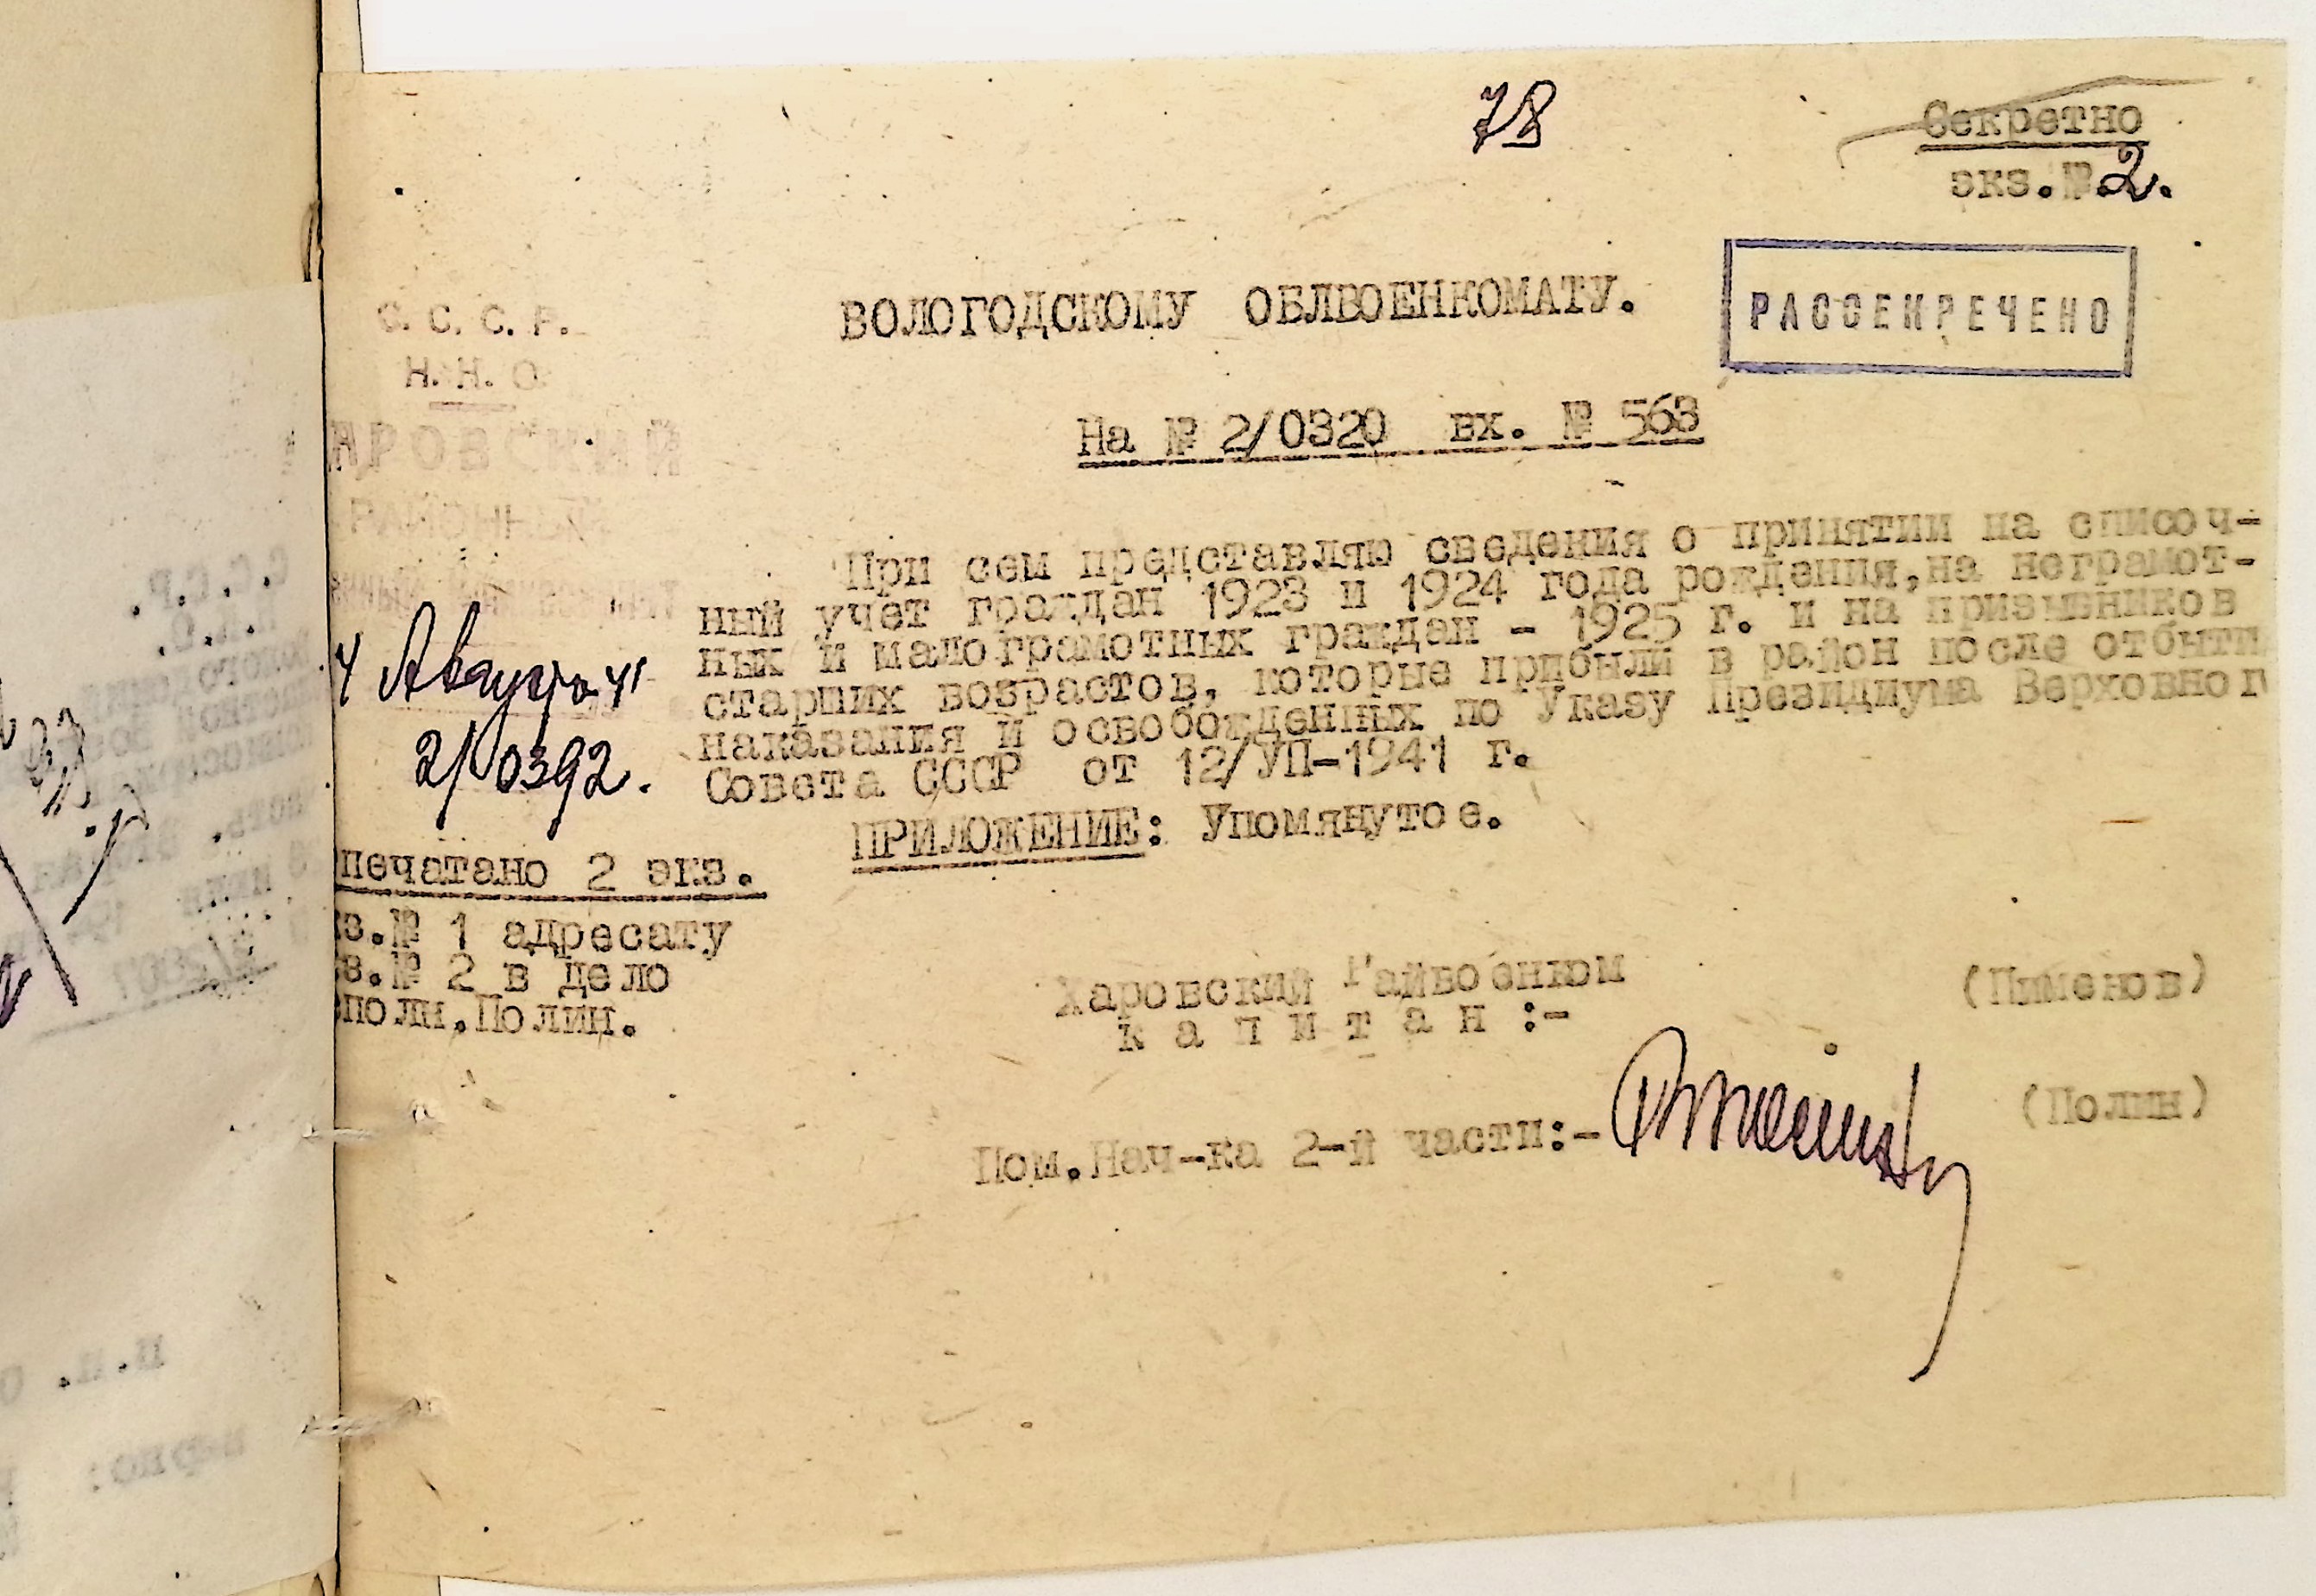 78
Секретно
экз.№ 2.
РАССЕКРЕЧЕНО
С. С. С. Р.
Н. Н. О.
АРОВСКИЙ
РАЙОННЫЙ
4 Августа 41
2/0392.
ВОЛОГОДСКОМУ ОБЛВОЕНКОМАТУ.
На № 2/0320 вх. № 563
При сем представляю сведения о принятии на списоч-
ный учет граждан 1923 и 1924 года рождения,на неграмот-
ных и малограмотных граждан - 1925 г. и на призывников
старших возрастов, которые прибыли в район после отбыти
наказания и освобожденных по Указу Президиума Верховног
Совета СССР от 12/УП-1941 г.
ПРИЛОЖЕНИЕ: Упомянутое.
печатано 2 экз.
з.№ 1 адресату
з.№ 2 в дело
полн.Полин.
Харовский Райвоенком
капитан:- (Пименов)
Пом.Нач-ка 2-й части:- (Полин)